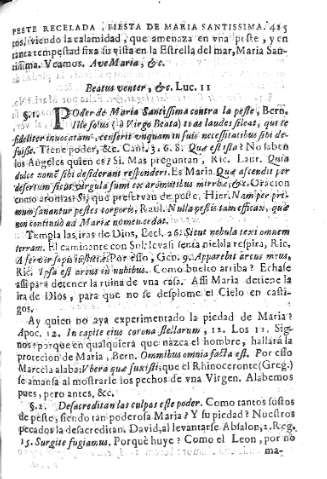 PESTE RECELADA, FIESTA DE MARIA SANTISSIMA. 425
tos, viendo la calamidad, que amenaza en vna peste, y en
tanta tempestad fixa su vista en la Estrella del mar, Maria San-
tissima. Veamos. Ave Maria, &c.
Beatus venter, &c. Luc. 11
§. 1. Poder de Maria Santissima contra la peste, Bern.
Ille solus (ò Virgo Beata) tuas laudes sileat, qui te
fideliter invocatam, censerit unquam in suis necessitatibus sibi de-
fuisse. Tiene poder, &c. Cant. 3. 6. 8: Quæ est ista? No saben
los Angeles quien es? Si. Mas preguntan, Ric. Laur. Quia
dulce nomē sibi desiderant responderi. Es Maria. Quæ ascendit per
desertum sicut virgula fumi ex aromatibus mirrhæ, &c. Oracion
como aromas? Si, que preservan de peste. Hier. Nam per pri-
mum sanantur pestes corporis, Raul. Nulla pestis tam efficax, quæ
non continuò ad Mariæ nomen cedat.
Templa las iras de Dios, Eccl. 26. Sicut nebula texi omnem
terram. El caminante con Sol: levasi senta niebla respira, Ric.
A fervore supposititios. Por esso, Gen. 9. Apparebit arcus meus,
Ric. Ipsa est arcus in nubibus. Como buelto arriba? Echase
assi para detener la ruina de vna casa. Assi Maria detiene la
ira de Dios, para que no se desplome el Cielo en casti-
gos.
Ay quien no aya experimentado la piedad de Maria?
Apoc. 12. In capite eius corona stellarum, 12. Los 12. Sig-
nos; porque en qualquiera que nazca el hombre, hallarà la
proteccion de Maria, Bern. Omnibus omnia facta est. Por esso
Marcela alaba: Ubera quæ suxisti: que el Rhinoceronte (Greg.)
se amansa al mostrarle los pechos de vna Virgen. Alabemos
pues, pero antes, &c.
§. 2. Desacreditan las culpas este poder. Como tantos sustos
de peste, siendo tan poderosa Maria? Y su piedad? Nuestros
pecados la desacreditan. David, al levantarse Absalon, 2. Reg.
15. Surgite fugiamus. Porquè huye? Como el Leon, por no
ma-